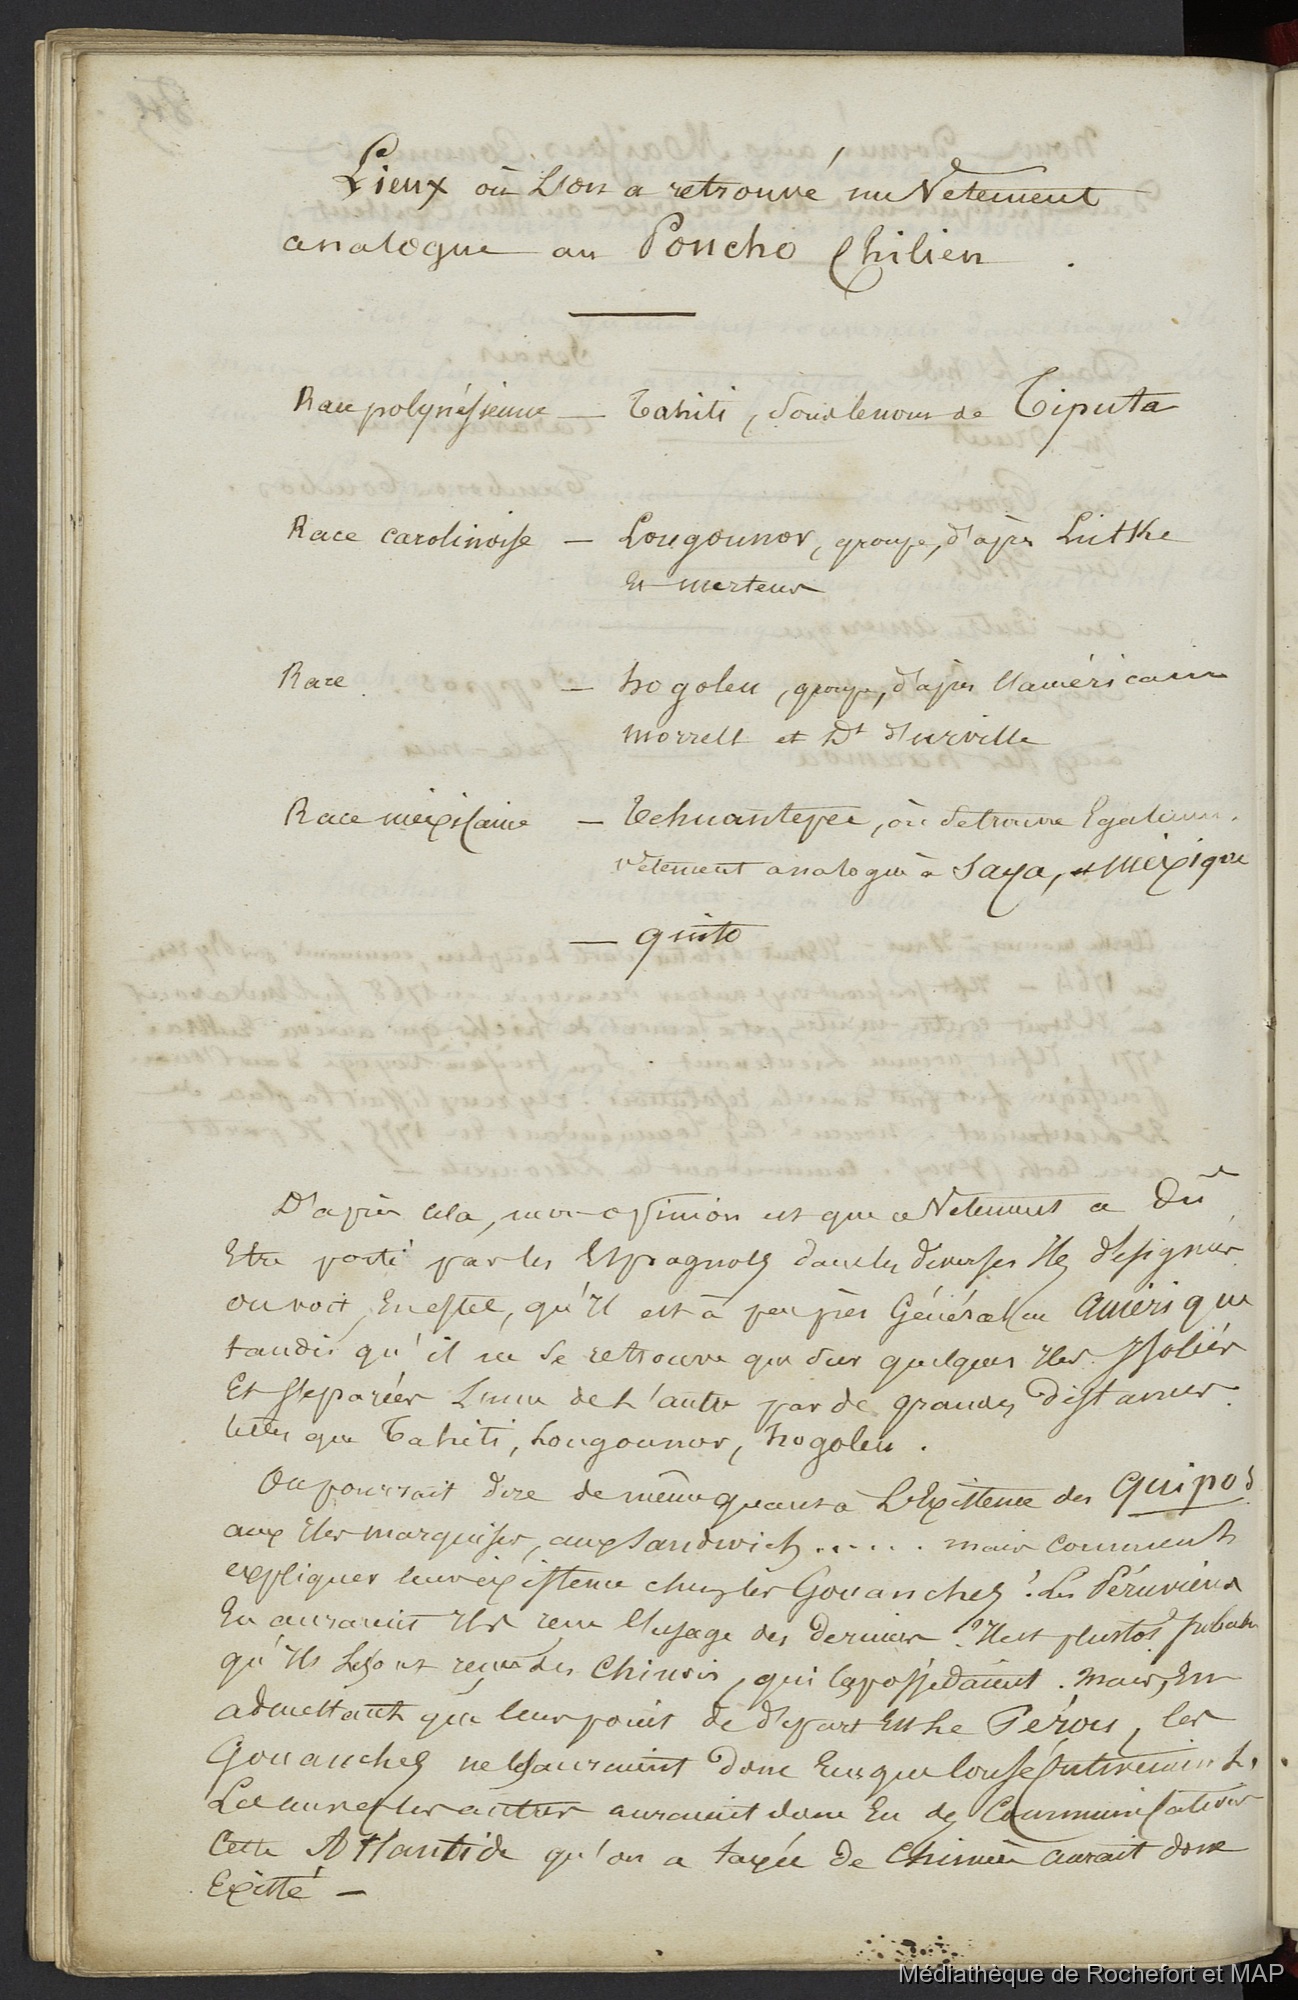 Lieux où L'on a retrouvé un Vetement
analogue au Poncho Chilien .
Race polynésienne — Tahiti, sous le nom de Tiputa
Race carolinoise — Lougounor, groupe, d'après Lutke
Et mertens
Race — hogoleu, groupe, d'après l'américain
morrell et Dt d'urville
Race mexicaine — Tehuantepec, où se trouve Egalem.
vêtement analogue à Saya, et Mexique
— quito
D'après cela, mon opinion est que ce Vetement a Dû
Etre porté par les Espagnols dans les diverses Iles désignées
on voit, En effet, qu'Il est à peu près Général en Amérique
tandis qu'il ne se retrouve que sur quelques Iles Isolées
Et separées L'une de L'autre par de grandes distances
telles que Tahiti, Lougounor, hogoleu .
On pourrait dire de même quant à L'Existence des Quipos
aux Iles marquises, aux Sandwich ..... mais comment
expliquer leur existence chez les Gouanches ? Les Péruviens
En auraient Ils reçu l'usage des derniers ? Il est plustôt probable
qu'Ils Les ont reçus des Chinois, qui les possédaient . mais, En
admettant que leur point de départ Est Le Pérou, les
Gouanches ne les auraient donc Eus que consécutivement.
Les uns et les autres auraient donc Eu des Communications
Cette Atlantide qu'on a taxée de Chimère aurait donc
Existé —
Médiathèque de Rochefort et MAP